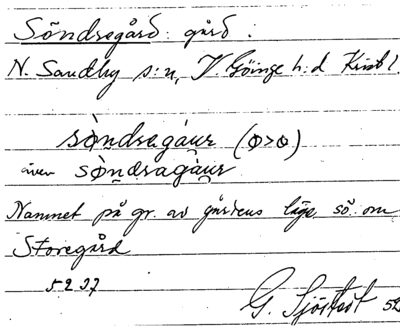 Söndregård: gård.
N. Sandby s:n, V. Göinge h:d Krist l.
sòndragáur (ɵ>o)
även sòndragàur
Namnet på gr. av gårdens läge sö. om
Storegård
5237
G. Sjöstedt 52